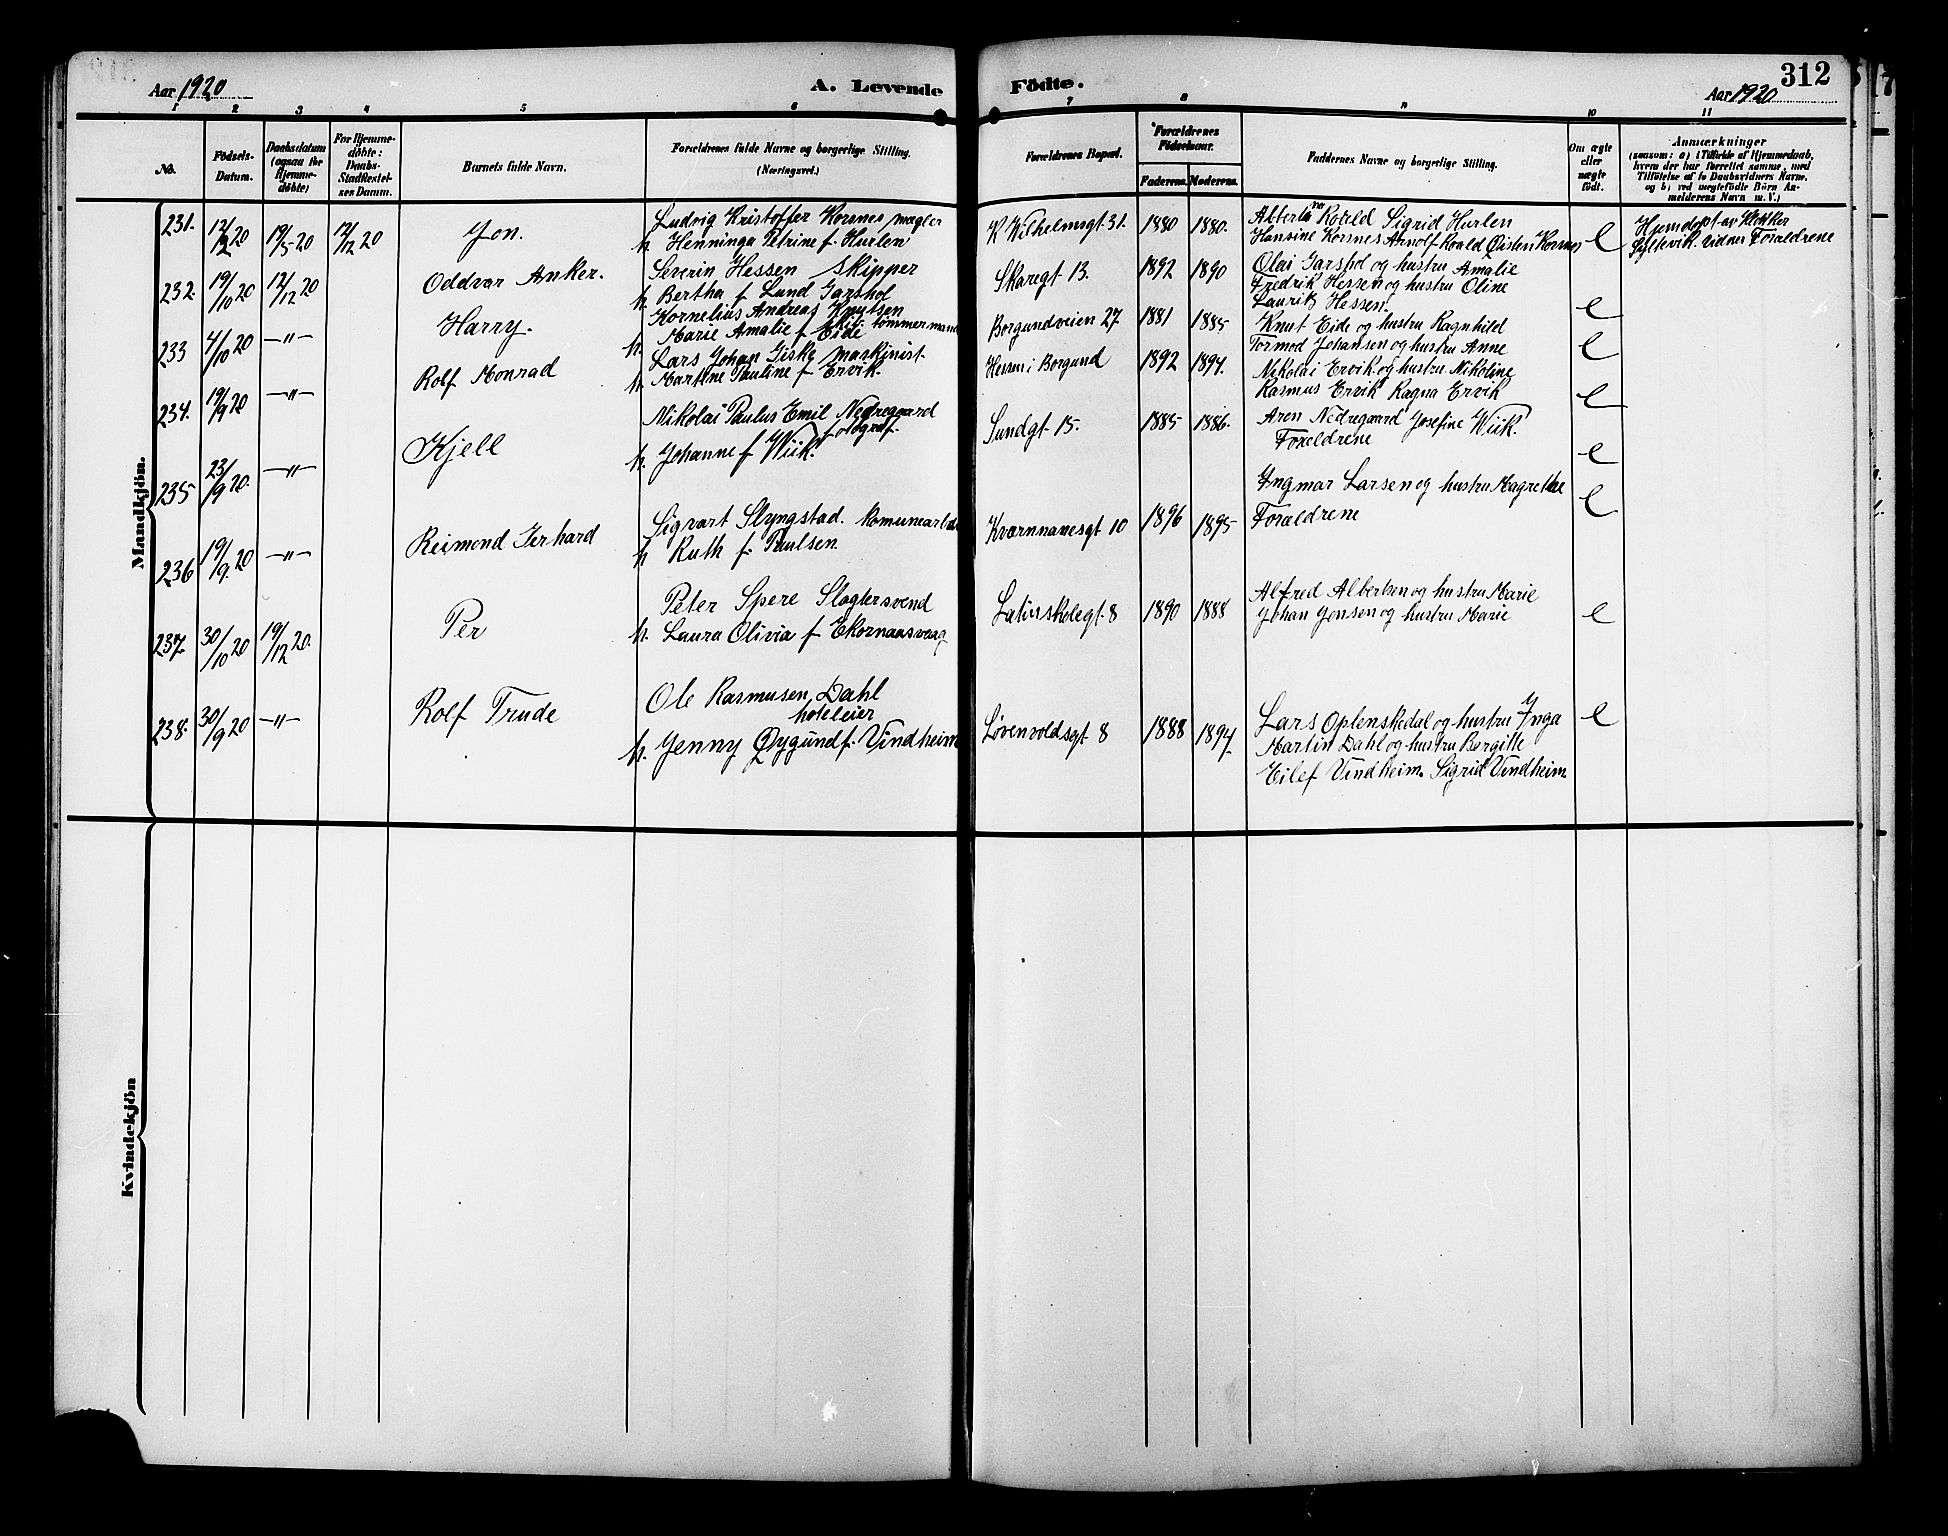 Aar 1920
A. Levende
Födte.
312
Aar 1920
1 2 3 4 5 6 7 8 9 10 11
No.
Födsels-
Datum.
Daabsdatum
(ogsaa for
Hjemme-
döbte)
For Hjemme-
döbte:
Daabs-
Stadfæstel-
ses Datum.
Barnets fulde Navn.
Forældrenes fulde Navne og borgerlige Stilling.
(Næringsvei.)
Forældrenes Bopæl.
Forældrenes
Födselsaar.
Faderens. Moderens.
Faddernes Navne og borgerlige Stilling.
Om ægte
eller
uægte
født.
Anmærkninger
(saasom: a) i Tilfælde af Hjemmedaab,
hvem der har forrettet samme, med
Tilföielse af to Daabsvidners Navne,
og b) ved uegtefödte Börn An-
melderens Navn m. V.)
Mandkjön.
231. 12/2 20 19/5 20 12/12 20 Jon.
Ludvig Kristoffer Korsnes mægler
h. Henninga Petrine f. Hurlen
K Wilhelmsgt 31. 1880 1880.
Sigrid Hurlen
Hansine Korsnes Arnolf Roald Øisten Korsnes
e
Hjemdøpt av
Foræeldrene
232. 19/10 20 12/12 20 Oddvar Anker.
Severin Hessen skipper
h. Bertha f. Lund Garshol
Skaregt 13. 1892 1890
Olai Garshol og hustru Amalie
Fredrik Hessen og hustru Oline
Laurits Hessen.
e
233 4/10 20 —"— Harry.
Kornelius Andreas Knutsen
tømmermand
h. Marie Amalie f. Eide
Borgundveien 27. 1881 1885
Knut Eide og hustru Ragnhild
Tormod Johansen og hustru Anne
e
234. 19/9 20 —"— Rolf Monrad
Lars Johan Giske maskinist.
h. Martine Pauline f. Ervik.
Hessen i Borgund 1892 1894.
Nikolai Ervik og hustru Nikoline
Rasmus Ervik Ragna Ervik
e
235 23/9 20. —"— Kjell
Nikolai Paulus Emil Nedregaard
fotograf.
h. Johanne f. Wiik.
Sundgt 15. 1885 1886.
Aren Nedregaard Josefine Wiik.
Foræeldrene
e
236 19/9. 20 —"— Reimond Gerhard
Sigvart Slyngstad. komunearb.
h Ruth f. Paulsen.
Kværnnæsgt 10 1896 1895
Ingmar Larsen og hustru Magrethe
Foræeldrene
e
237. 30/10 20 19/12 20. Per
Peter Spere Slagtersvend
h. Laura Olivia f. Ekornaasvaag
Latinskolegt. 8 1890 1888
Alfred Albertsen og hustru Marie
Johan Jensen og hustru Marie
e
238. 30/9 20 —"— Rolf Trude
Ole Rasmusen Dahl
hoteleier
h. Jenny Øygund f. Vindheim
Løvenvoldsgt 8 1888 1894.
Lars Oplenskedal og hustru Inga
Martin Dahl og hustru Bergitte
Eilef Vindheim. Sigrid Vindheim
e
Kvindekjön